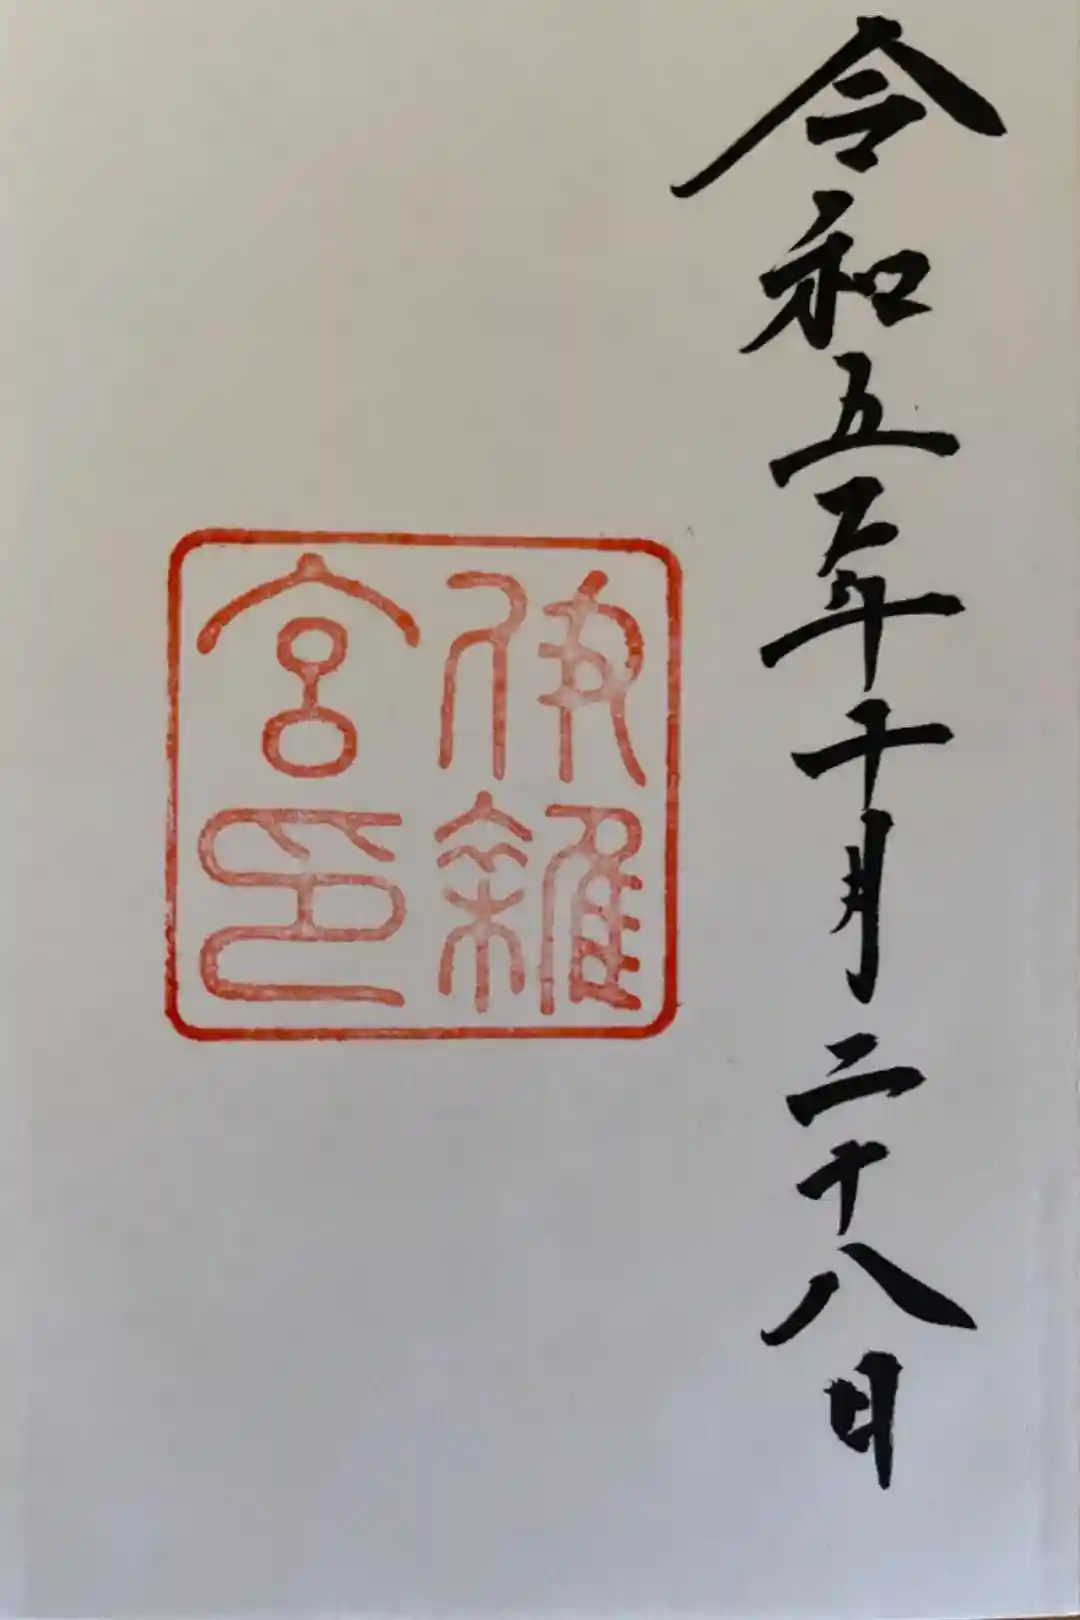 令和五年十月二十八日
伊雜
宮印